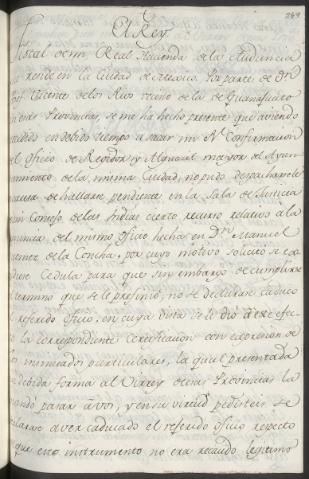 249
El Rey
Fiscal de mi Real Hacienda de la Audiencia
que reside en la Ciudad de Mexico. Por parte de Dn
Vicente de los Rios vecino de la de Guanajuato
en esas Provincias, se me ha hecho presente que aviendo
acudido en debido tiempo a sacar mi Rl Confirmacion
del oficio de Rexidor y Alguacil mayor del Ayun
tamiento de la misma Ciudad, no pudo despacharsele
a causa de hallarse pendiente en la Sala de Justicia
de mi Consejo de las Indias cierto recurso relativo a la
renuncia, del mismo oficio hecha en Dn Manuel
de la Concha, por cuyo motivo solicitó se ex
Cedula para que sin embargo de cumplirse
termino que se le prefinió, no se declarase caduco
el referido oficio: en cuya vista se le dió a este efec
to la correspondiente Certificacion con expresion de
los enunciados particulares, la qual presentada
en debida forma al Virrey de esas Provincias la
mandó pasar a vos, y en su virtud pedisteis se
declarase aver caducado el referido oficio respecto
a que ese instrumento no era recaudo legitimo